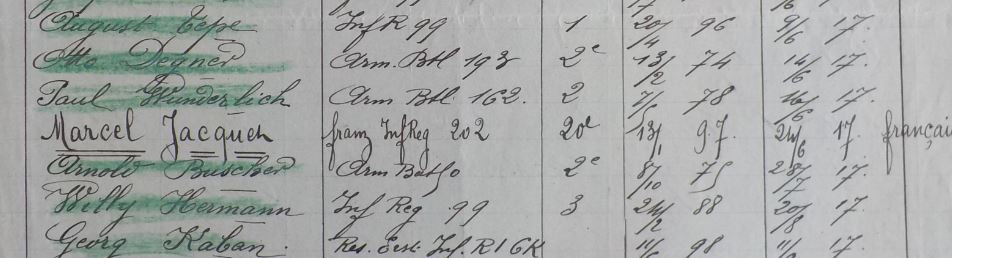 August Tepe Inf R 99 1 20/4 96 9/6 17.
Otto Degner Arm. Btl 193 2e 13/2 74 14/6 17.
Paul Wunderlich Arm Btl. 162. 2 78 16/6 17.
Marcel Jacquen franz InfReg 202 20e 13/1 97. 24/6 17 françai
Arnold Buscher Arm 2e 8/10 75 28/7 17.
Willy Hermann Inf Reg 99 3 24/2 88 20/8 17.
Georg Kaban. Res. Inf. R 16K 98 17.